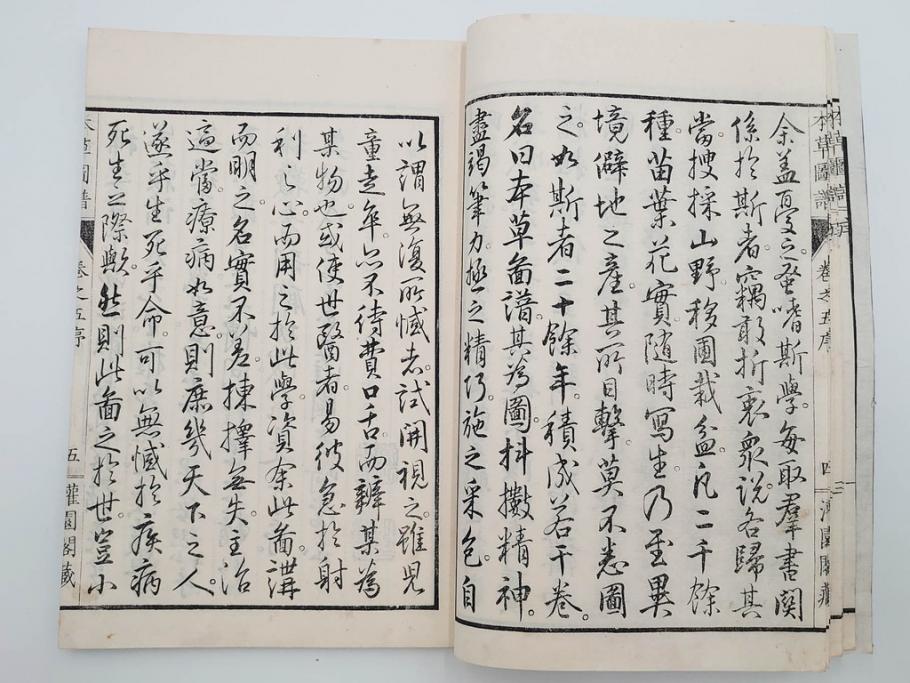 本草圖譜 卷之五序 四 灌園閣藏
余蓋憂之。蚤嗜斯學。每取羣書関
係於斯者。竊敢折衷衆說。各歸其
當。搜採山野。移圃栽盆。凡二千餘
種。苗葉花實。隨時寫生。乃至異
境僻地之產。其所目擊莫不悉圖
之。如斯者二十餘年。積成若干卷。
名曰本草圖譜。其為圖抖擻精神。
盡竭筆力。極之精巧。施之采色。自
以謂無復所憾者。試開視之。雖児
童走卒。亦不待費口舌。而辨某為
某物也。或使世醫者。易彼急於射
利之心。而用之於此學。資余此圖。講
而明之。名實不差。揀擇無失。主治
適當。療病如意。則庶幾天下之人。
遂乎生死乎命。可以無憾於疾病
死生之際歟。然則此圖之於世。豈小
本草圖譜 卷之五序 五 灌園閣藏